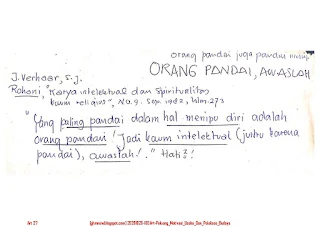 orang pandai juga pandai
ORANG PANDAI, AWASLAH
J. Verhaar, S.J.
Rohani, "Karya intelektual dan Spiritualitas
kaum religius", No. 9. Sep. 1982, hlm. 273
"Yang paling pandai dalam hal menipu diri adalah
orang pandai! Jadi kaum intelektual (justru karena
pandai), awaslah!." Hati2!
Art 27